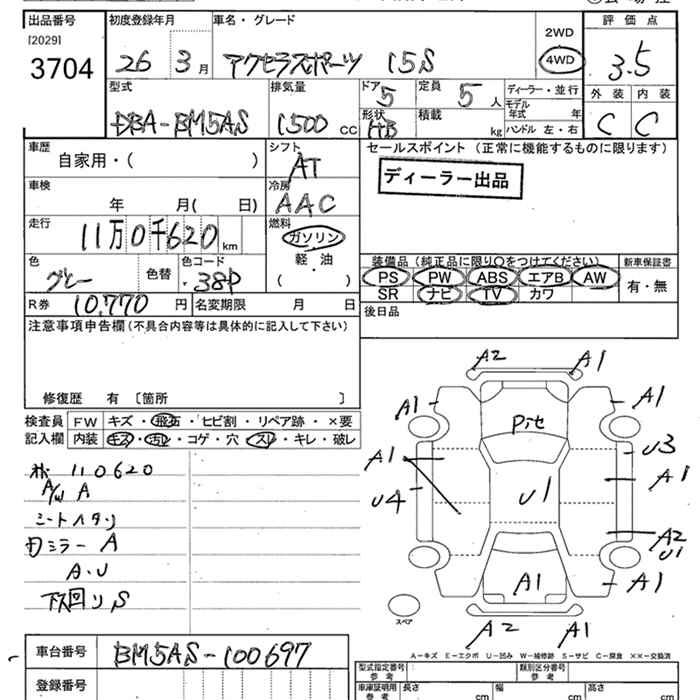 出品番号 初度登録年月 車名・グレード 2WD 評価点
[2029] 3704 26 3月 アクセラスポーツ 15S 4WD 3.5
型式 排気量 ドア 5 定員 5人 ディーラー・並行 外装 内装
DBA-BM5AS 1500 CC 形状 HB 積載 kg モデル年式 年 C C
ハンドル 左・右
車歴 自家用・( ) シフト AT セールスポイント (正常に機能するものに限ります)
車検 年 月( 日) 冷房 AAC ディーラー出品
走行 11万0千620km 燃料 ガソリン
軽・油
( )
色 グレー 色替 色コード 38P 装備品 (純正品に限り○をつけてください) 新車保証書
PS PW ABS エアB AW 有・無
SR ナビ TV カワ
R券 10,770円 名変期限 月 日 後日品
注意事項申告欄 (不具合内容等は具体的に記入して下さい)
修復歴 有 〔箇所 〕
検査員 FW キズ・飛石・ヒビ割・リペア跡・×要
記入欄 内装 キズ・汚レ・コゲ・穴・スレ・キレ・破レ
110620
A/W A
シートヘタリ
ミラー A
A・U
下回りS
A2 A1
A1 A1
Pite
A1 U3
U4 U1 A1
A2
U1
A1 A1
スペア
A2 A1
A－キズ E－エクボ U－凹み W－補修跡 S－サビ C－腐食 ××－交換済
車台番号 BM5AS-100697 型式指定番号 類別区分番号
登録番号 車庫証明用参考 長さ cm 幅 cm 高さ cm